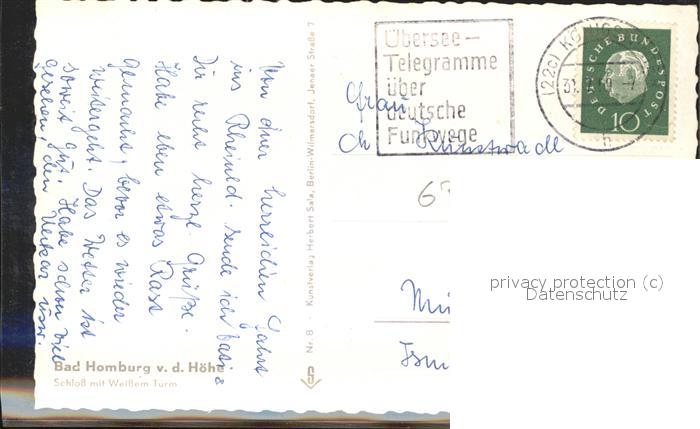 Von einer herrlichen Fahrt
ins Rheinld. sende ich
Dir recht herzl. Grüße.
Habe eben etwas Rast
gemacht, bevor es wieder
weitergeht. Das Wetter ist
soweit gut. Habe schon viel
gesehen, den Neckar usw.
Bad Homburg v. d. Höhe
Schloß mit Weißem Turm
Nr. 8 Kunstverlag Herbert Sala, Berlin-Wilmersdorf, Jenaer Straße 7
Übersee-
Telegramme
über
deutsche
Funkwege
(22c) KÖNIGS
31.
DEUTSCHE BUNDESPOST
10
Frau
Ch.
Mü
Ism
privacy protection (c)
Datenschutz